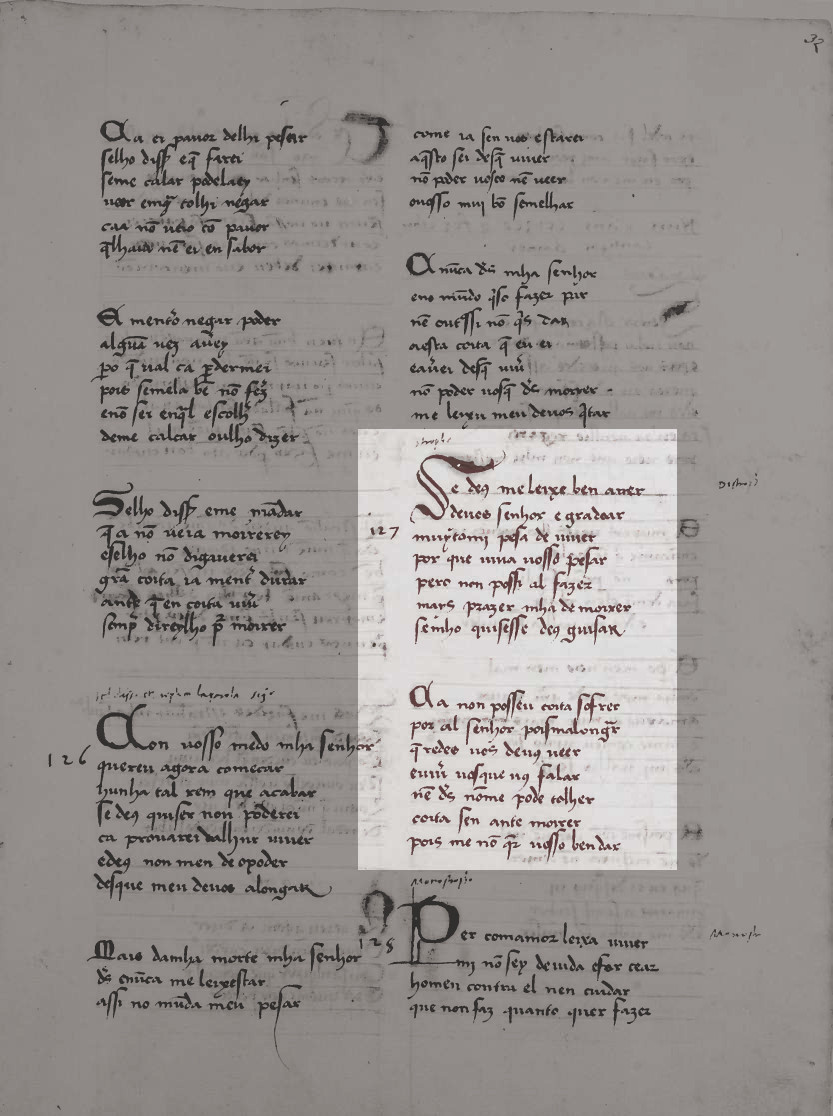 Ca ei pauor delhi pesar
selho diss̃ e q̃ farei
seme calar podelaey
ueer emq̃ tolhi negar
caa nõ ueio cõ pauor
q̃lhaua nẽ ei en sabor
E mentr̃o negar poder
algũa uez auẽy
po q̃ ual ca perdermei
pois semela bẽ nõ fez
enõ sei enq̃l escolh
deme calar oulho dizer
Selho diss̃ eme mãdar
q̃a nõ ueia moirerey
eselho nõ digauerei
grã coita ia mentr̃ durar
ante q̃ en coita uiũ
semp̃ direylho p̃ moirer
126
Con uosso medo mha senhor
quereu agora começar
hunha tal rem que acabar
se deꝯ quiser non poderei
ca prouarei dalhur uiuer
edeꝯ non men de opoder
desque meu deuos alongar
Mais damha morte mha senhor
d̃s enũca me leixestar
assi no mũda meu pesar
come ia sen uos estarei
aq̃sto sei desq̃ uiuer
nõ poder uosco nẽ ueer
ouosso mui bõ semelhar
Ca nũca d̃s mha senhor
eno mũdo q̃so fazer par
nẽ outrssi nõ q̃s dar
aesta coita q̃ eu ei
eauei desq̃ uiũ
nõ poder uosq̃ d̃s morrer
me leyxu meu deuos q̃tar
127
Se deꝯ me leixe ben auer
deuos senhor e gradoar
muytomi pesa de uiuer
por que uiua uosso pesar
pero non possi al fazer
mays prazer mha de moirer
semho quisesse deꝯ guisar
Ca non posseu coita sofrer
por al senhor poismalongar
q̃ redes uos deuꝯ ueer
euiũ uosque uꝯ falar
nẽ d̃s nõme pode tolher
coita sen ante moirer
pois me nõ q̃r uosso bendar
128
Per comamor leixa uiuer
mi nõ sey deuida esforcear
homen contra el nen cuidar
que non faz quanto quer fazer